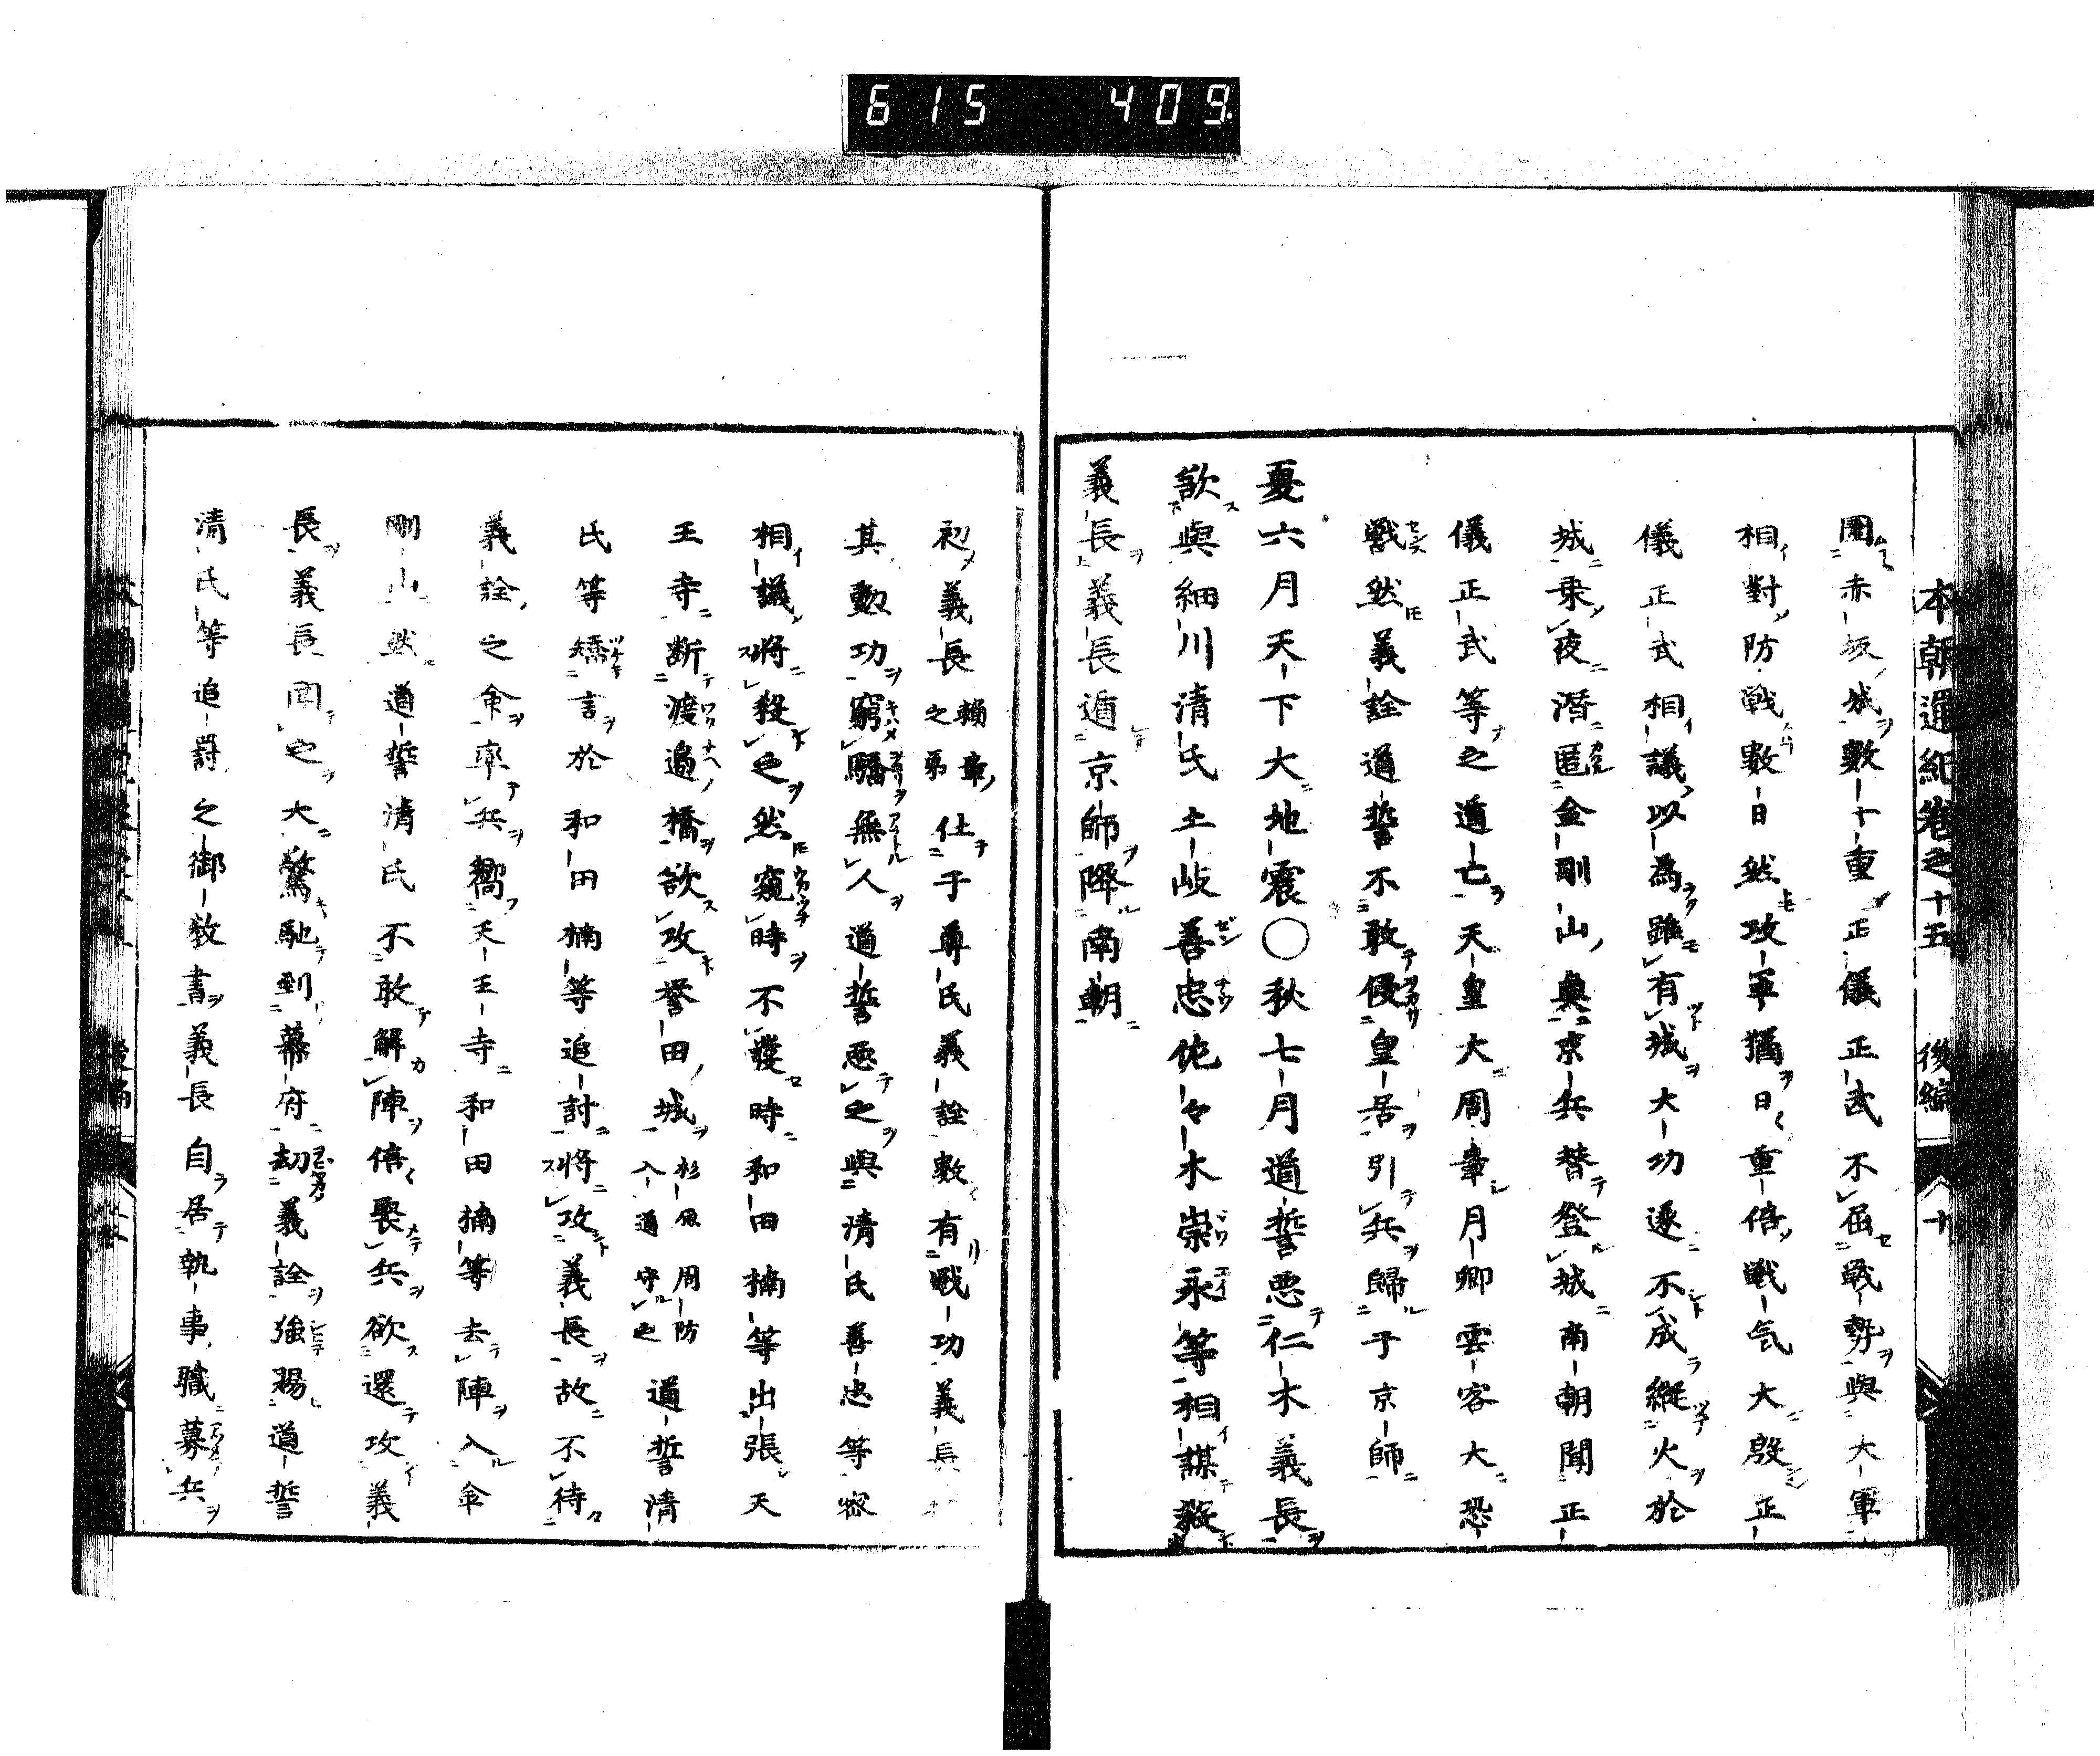 615 409
本朝通紀卷之十五 後編 十
圍赤坂城數十重正儀正武不屈戰勢與大軍
相對防戰數日然攻軍猶日〻重倍戰气大殷正
儀正武相議以為雖有城大功遂不成縱火於
城乗夜潛匿金剛山奧京兵替登城南朝聞正
儀正武等之遁亡天皇大周章月卿雲客大恐
戰然義詮道誓不敢侵皇居引兵歸于京師
夏六月天下大地震〇秋七月道誓惡仁木義長
欲與細川清氏土岐善忠佐々木崇永等相謀殺
義長義長遁京師降南朝
初義長頼章之弟仕于尊氏義詮數有戰功義長
其勳功窮驕無人道誓惡之與清氏善忠等密
相議將殺之然窺時不發時和田楠等出張天
王寺斷渡邉橋欲攻誉田城杉原周防入道守之道誓清
氏等矯言於和田楠等追討將攻義長故不待
義詮之命率兵嚮天王寺和田楠等去陣入金
剛山然道誓清氏不敢解陣倍聚兵欲還攻義
長義長聞之大驚馳到幕府劫義詮強賜道誓
清氏等追罸之御教書義長自居執事職募兵